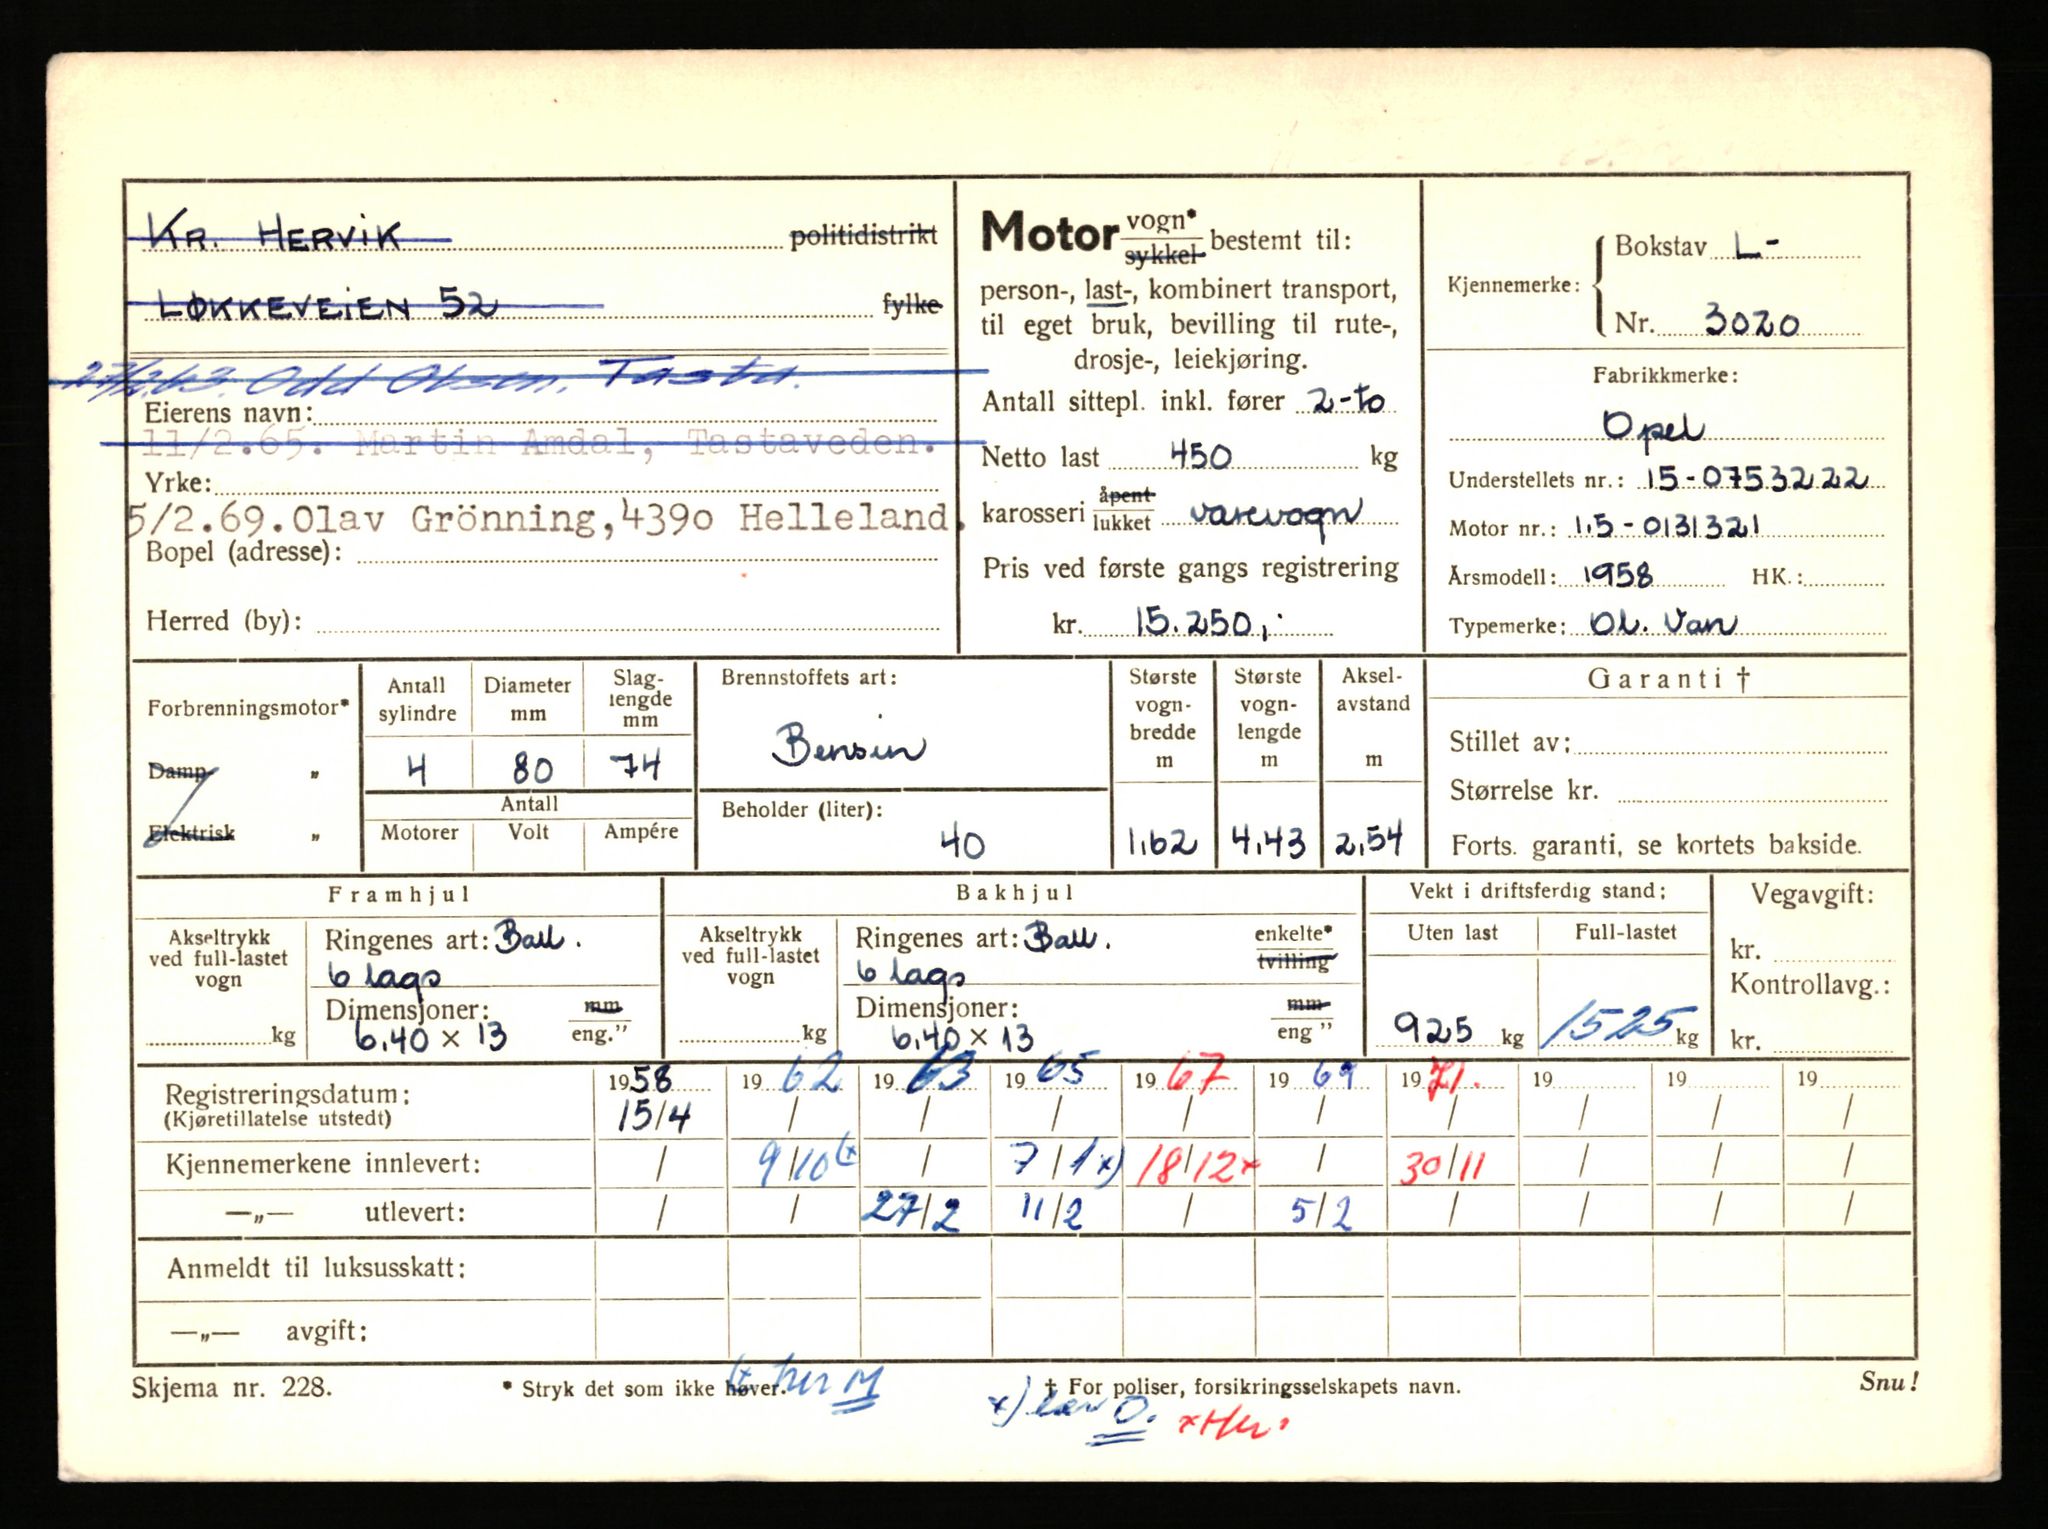 KR. HERVIK politidistrikt
LØKKEVEIEN 52 fylke
27/2.63. Odd Olsen, Tasta.
Eierens navn:
11/2.65. Martin Amdal, Tastaveden.
Yrke:
5/2.69.Olav Grönning,4390 Helleland.
Bopel (adresse):
Herred (by):
Motor vogn* sykkel bestemt til:
person-, last-, kombinert transport,
til eget bruk, bevilling til rute-,
drosje-, leiekjøring.
Antall sittepl. inkl. fører 2-to
Netto last 450 kg
karosseri åpent lukket varevogn
Pris ved første gangs registrering
kr. 15.250,-
Kjennemerke: Bokstav L-
Nr. 3020
Fabrikkmerke:
Opel
Understellets nr.: 15-0753222
Motor nr.: 1.5-0131321
Årsmodell: 1958 HK.:
Typemerke: Ol. Van
Forbrenningsmotor*
Damp "
Elektrisk "
Antall sylindre 4
Diameter mm 80
Slaglengde mm 74
Antall
Motorer Volt Ampére
Brennstoffets art:
Bensin
Beholder (liter):
40
Største vogn-bredde m 1.62
Største vogn-lengde m 4.43
Aksel-avstand m 2.54
Garanti †
Stillet av:
Størrelse kr.
Forts. garanti, se kortets bakside.
Framhjul
Akseltrykk ved full-lastet vogn
kg
Ringenes art: Ball.
6 lags
Dimensjoner: mm
6.40 x 13 eng."
Bakhjul
Akseltrykk ved full-lastet vogn
kg
Ringenes art: Ball. enkelte*
6 lags tvilling
Dimensjoner: mm
6.40 x 13 eng "
Vekt i driftsferdig stand:
Uten last Full-lastet
925 kg 1525 kg
Vegavgift:
kr.
Kontrollavg.:
kr.
Registreringsdatum: 1958 1962 1963 1965 1967 1969 1971. 19 19 19
(Kjøretillatelse utstedt) 15/4 / / / / / / / / /
Kjennemerkene innlevert: / 9/10 (x / 7/1 x) 18/12 x / 30/11 / / /
—„— utlevert: / / 27/2 11/2 / 5/2 / / / /
Anmeldt til luksusskatt:
—„— avgift:
Skjema nr. 228.
* Stryk det som ikke høver.
(x her M
† For poliser, forsikringsselskapets navn.
Snu!
x) O.
x Her.